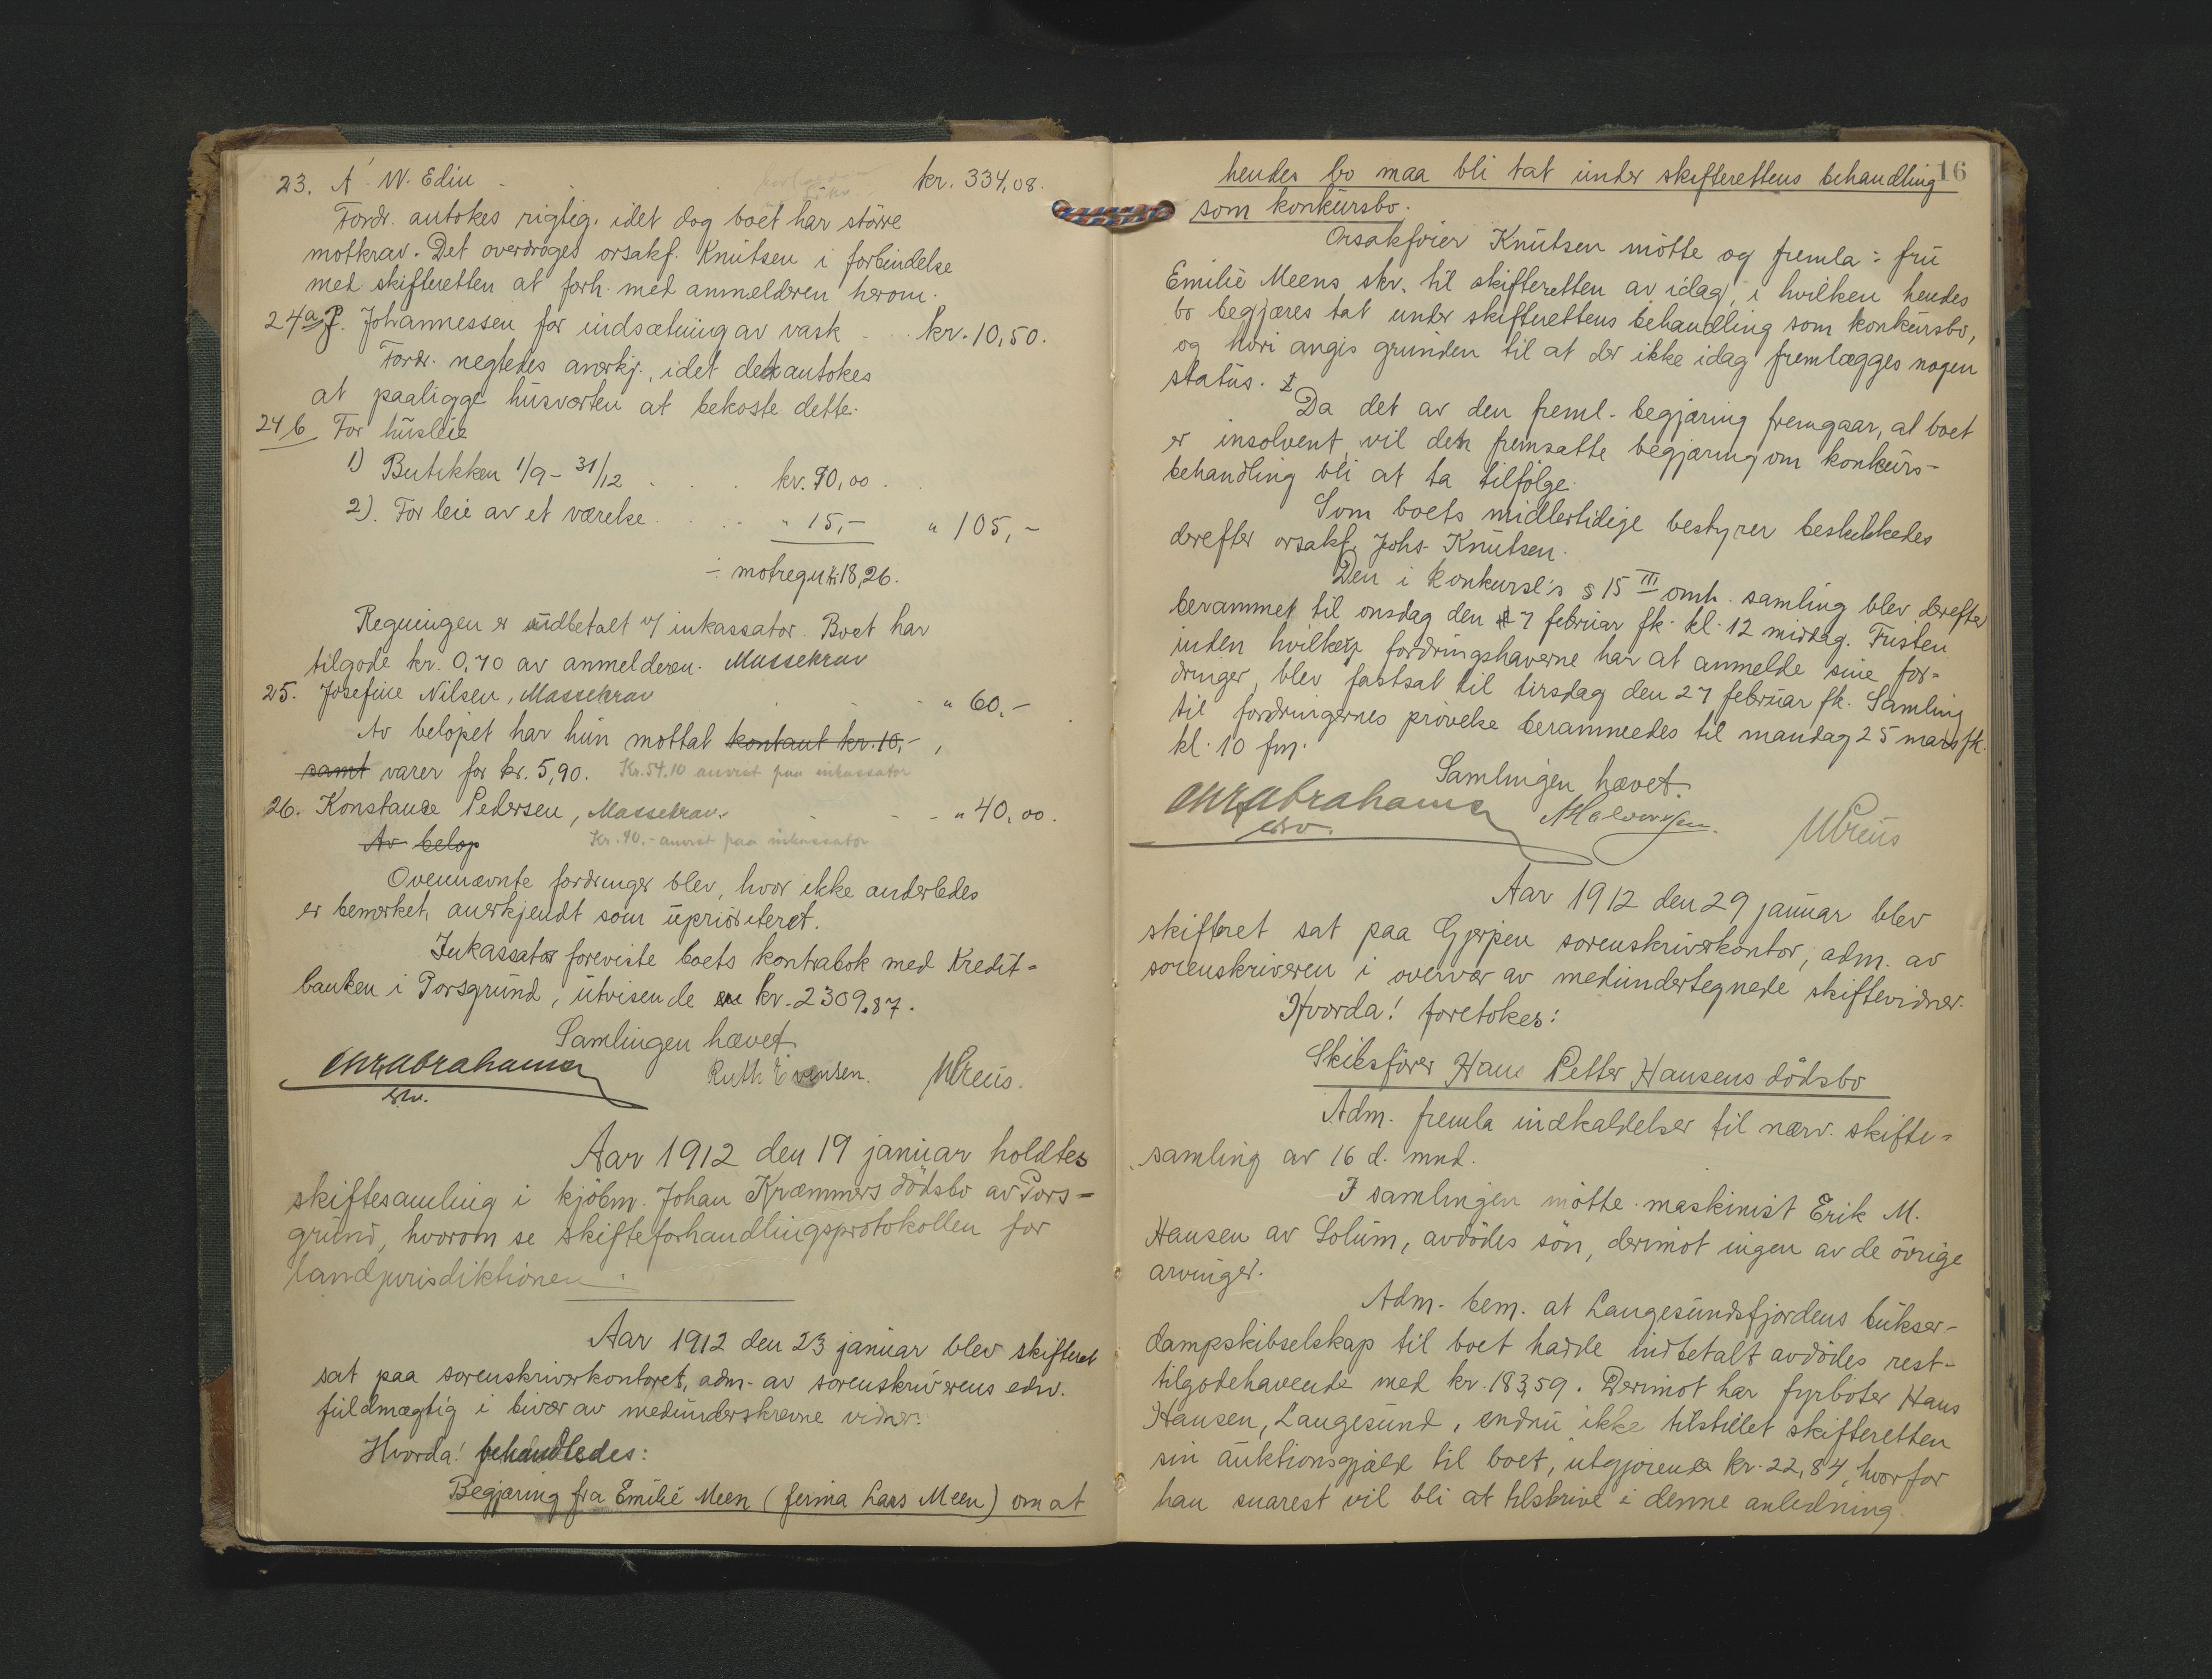 23. A. W. Edin kr. 334,08.
Fordr. antokes rigtig, idet dog boet har större
motkrav. Det overdroges orsakf. Knutsen i forbindelse
med skifteretten at forh. med anmelderen herom.
24a J. Johannessen for indsætning av vask kr. 10,50.
Fordr. negtedes anerkj., idet det antokes
at paaligge husverten at bekoste dette.
24b For husleie
1) Butikken 1/9 - 31/12 kr. 90,00.
2). For leie av et værelse " 15,- " 105,-
÷ motregn. kr. 18,26.
Regningen er indbetalt v/ inkassator. Boet har
tilgode kr. 0,70 av anmelderen. Massekrav
25. Josefine Nilsen, Massekrav " 60,-
Av belöpet har hun mottat kontant kr. 10,-,
samt varer for kr. 5,90. Kr. 54.10 anvist paa inkassator
26. Konstanse Pedersen, Massekrav. " 40,00.
Av belöp Kr. 40.- anvist paa inkassator
Ovennævnte fordringer blev, hvor ikke anderledes
er bemerket, anerkjendt som uprioritert.
Inkassator foreviste boets kontrabok med Kredit-
banken i Porsgrund, utvisende kr. 2309.87.
Samlingen hævet.
Chr Abrahamsen Ruth Evensen. M Preus.
edsv.
Aar 1912 den 19 januar holdtes
skiftesamling i kjöbm. Johan Kræmmers dödsbo av Pors-
grund, hvorom se skifteforhandlingsprotokollen for
landjurisdiktionen.
Aar 1912 den 23 januar blev skifteret
sat paa sorenskriverkontoret, adm. av sorenskriverens edsv.
fuldmægtig i bivær av medunderskrevne vidner:
Hvorda! behandledes:
Begjæring fra Emilie Meen (firma Lars Meen) om at
16
hendes bo maa bli tat under skifterettens behandling
som konkursbo.
Orsakförer Knutsen mötte og fremla: fru
Emilie Meens skr. til skifteretten av idag, i hvilken hendes
bo begjæres tat under skifterettens behandling som konkursbo,
og hvori angis grunden til at der ikke idag fremlægges nogen
status.
Da det av den freml. begjæring fremgaar, at boet
er insolvent, vil den fremsatte begjæring om konkurs-
behandling bli at ta tilfölge.
Som boets midlertidige bestyrer beskikkedes
derefter orsakf. Johs. Knutsen.
Den i konkursl's § 15 III omh. samling blev derefter
berammet til onsdag den 7 februar fk. kl. 12 middag. Fristen
inden hvilken fordringshaverne har at anmelde sine for-
dringer, blev fastsat til tirsdag den 27 februar fk. Samling
til fordringernes prövelse berammedes til mandag 25 mars fk.
kl. 10 fm.
Samlingen hævet.
Chr Abrahamsen A Halvorsen. M Preus
edsv.
Aar 1912 den 29 januar blev
skifteret sat paa Gjerpen sorenskriverkontor, adm. av
sorenskriveren i overvær av medundertegnede skiftevidner.
Hvorda! foretokes:
Skibsförer Hans Petter Hansens dödsbo
Adm. fremla indkaldelser til nærv. skifte-
samling av 16 d. mnd.
I samlingen mötte maskinist Erik M.
Hansen av Solum, avdödes sön, derimot ingen av de övrige
arvinger.
Adm. bem. at Langesundsfjordens bukser-
dampskibselskap til boet hadde indbetalt avdödes rest-
tilgodehavende med kr. 183,59. Derimot har fyrböter Hans
Hansen, Langesund, endnu ikke tilstillet skifteretten
sin auktionsgjæld til boet, utgjörende kr. 22,84, hvorfor
han snarest vil bli at tilskrive i denne anledning.